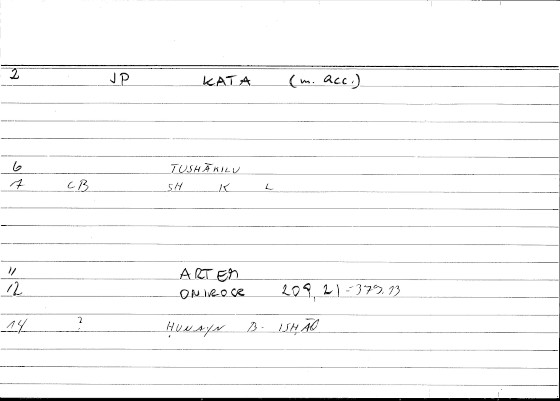 2 JP KATA (m. acc.)
6 TUSHĀKILU
7 CB SH K L
11 ARTEM
12 ONIROCR 209, 21 = 379.13
14 ? ḤUNAYN B. ISḤĀQ